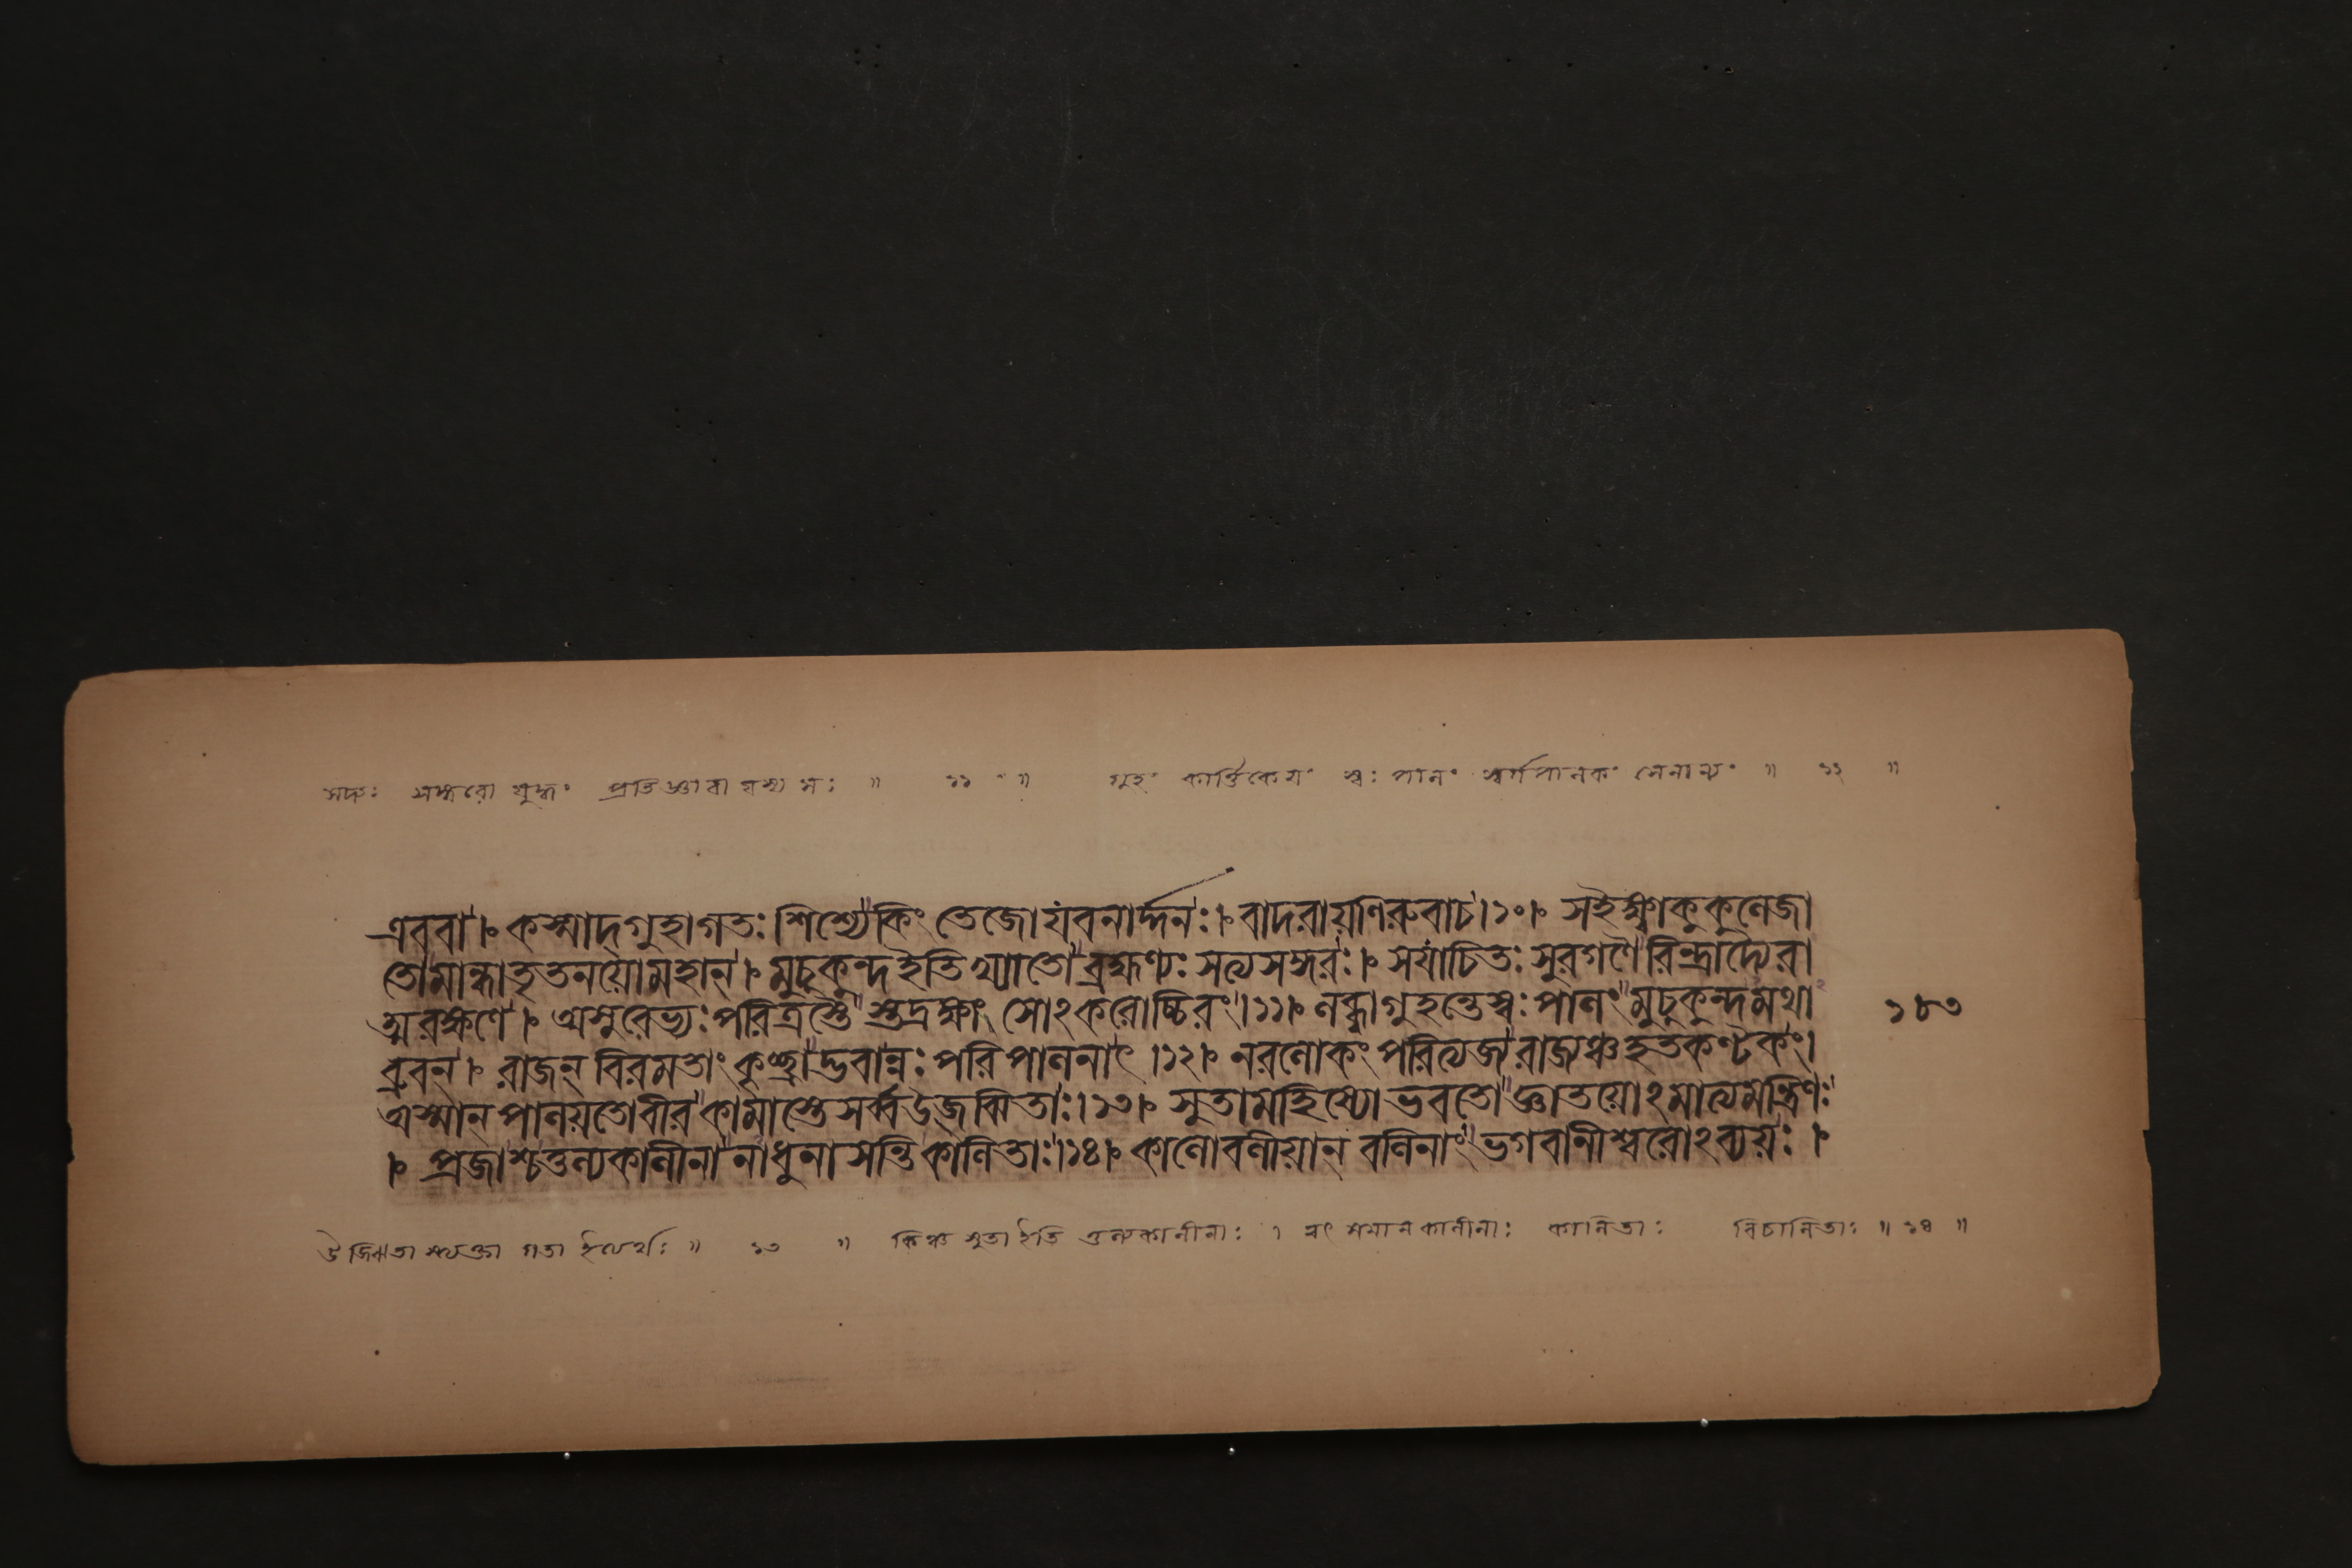 সঙ্গরঃ সঙ্গরো যুদ্ধং প্রতিজ্ঞা বা যস্য সঃ ॥ ১১ ॥ গুহং কার্ত্তিকেয়ং স্বঃ পালং স্বর্গপালকং সেনান্যং ॥ ১২ ॥
এববা । কস্মাদ্গুহাগতঃ শিশ্যে কিং তেজো যবনার্দ্দনঃ । বাদরায়ণিরুবাচ । ১০ । সইক্ষ্বাকুকুলেজা
তোমান্ধাতৃতনয়োমহান্ । মুচুকুন্দইতিখ্যাতো ব্রহ্মণ্যঃ সত্যসঙ্গরঃ । সযাচিতঃ সুরগণৈরিন্দ্রাদ্যৈরা
ত্মরক্ষণে । অসুরেভ্যঃ পরিত্রস্তৈ স্তদ্রক্ষাং সোঽকরোচ্চিরং । ১১ । লব্ধ্বাগুহন্তেস্বঃপালং মুচুকুন্দমথা ১৮৩
ব্রুবন্ । রাজন্ বিরমতাং কৃচ্ছ্রাদ্ভবান্নঃ পরিপালনাৎ । ১২ । নরলোকং পরিত্যজ্য রাজ্যঞ্চহতকণ্টকং ।
অস্মান্ পালয়তোবীর কামাস্তেসর্ব্বউজ্ঝিতাঃ । ১৩ । সুতামহিষ্যোভবতো জ্ঞাতয়োঽমাত্যমন্ত্রিণঃ
। প্রজাশ্চতুল্যকালীনা নাধুনাসন্তিকালিতাঃ । ১৪ । কালোবলীয়ান্ বলিনাং ভগবানীশ্বরোঽব্যয়ঃ ।
উজ্ঝিতা স্ত্যক্তা গতা ইত্যর্থঃ ॥ ১৩ ॥ কিঞ্চ সুতা ইতি তুল্যকালীনাঃ । ত্বৎ সমানকালীনাঃ কালিতাঃ বিচালিতাঃ ॥ ১৪ ॥